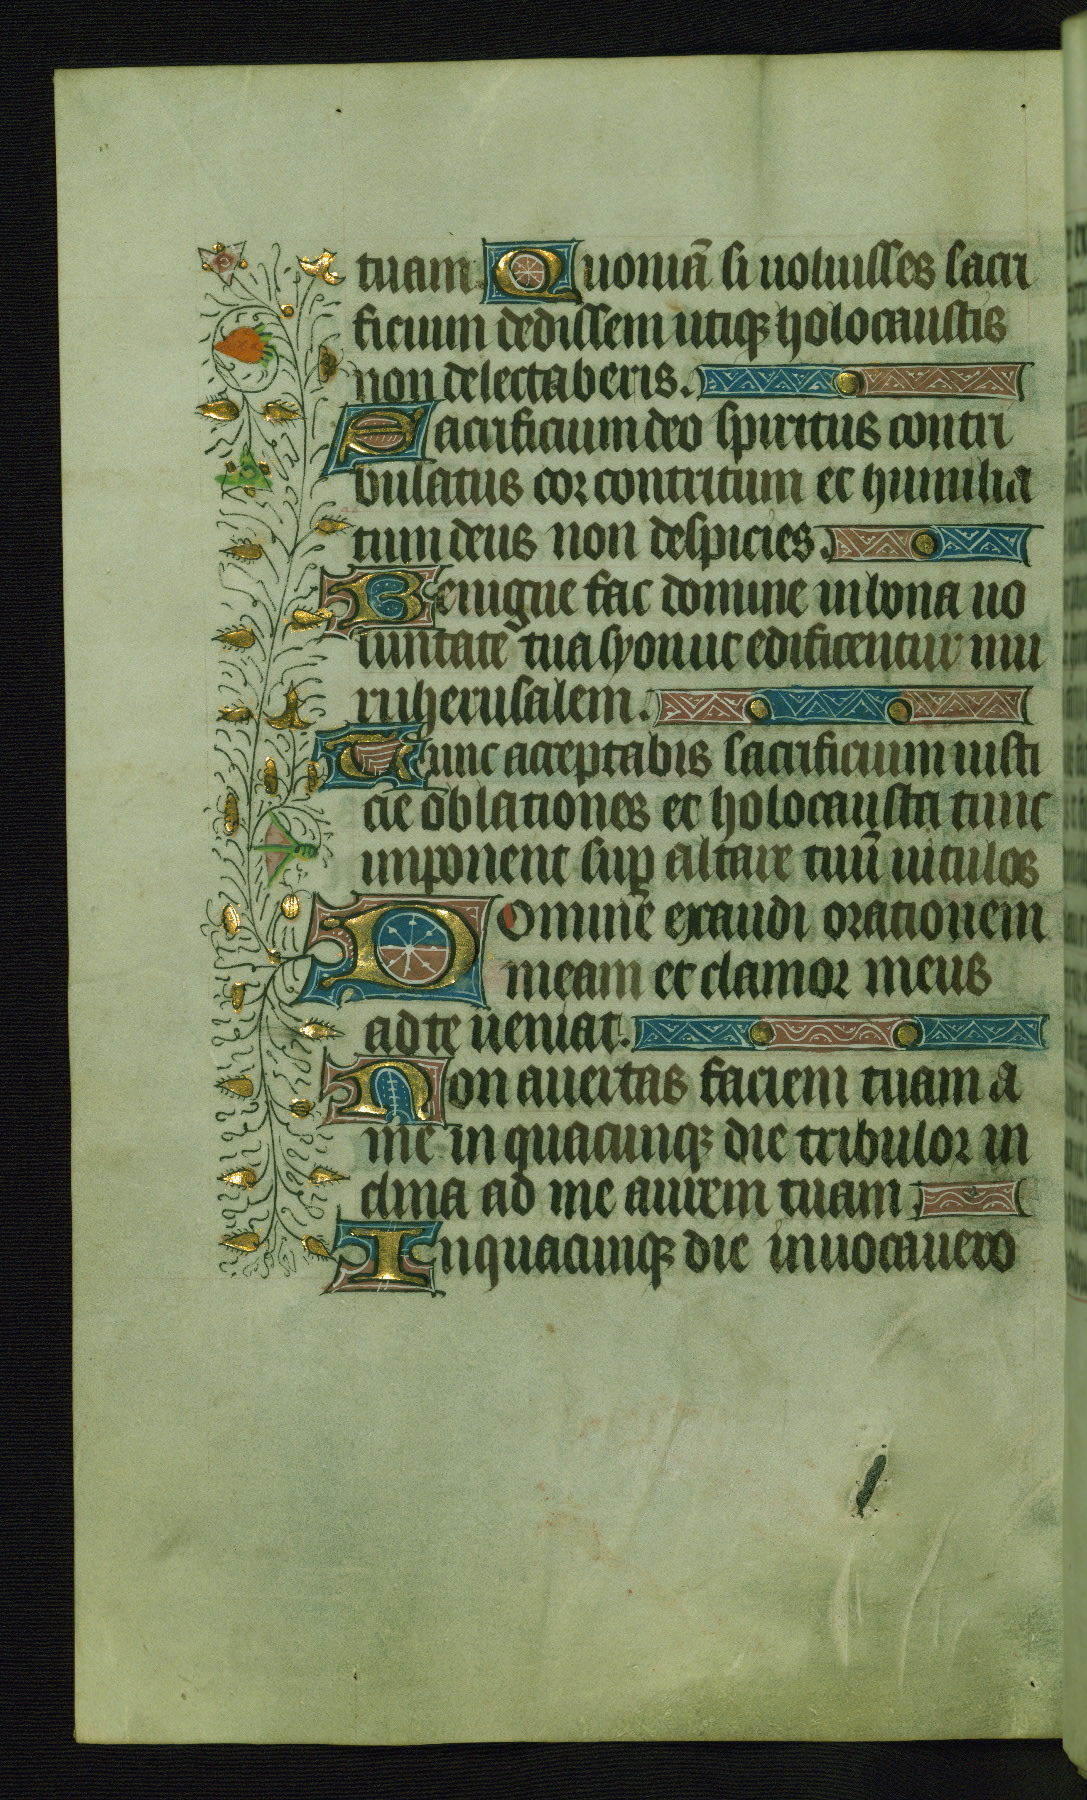 tuam. Quoniā si uoluisses sacri
ficium dedissem utiqꝫ holocaustis
non delectaberis.
Sacrificium deo spiritus contri
bulatus cor contritum et humilia
tum deus non despicies.
Benigne fac domine in bona uo
luntate tua syon ut edificentur mu
ri iherusalem.
Tunc acceptabis sacrificium iusti
cie oblationes et holocausta tunc
imponent suꝑ altare tuū uitulos
Domine exaudi orationem
meam et clamor meus
ad te ueniat.
Non auertas faciem tuam a
me in quacunqꝫ die tribulor in
clina ad me aurem tuam.
In quacunqꝫ die inuocauero